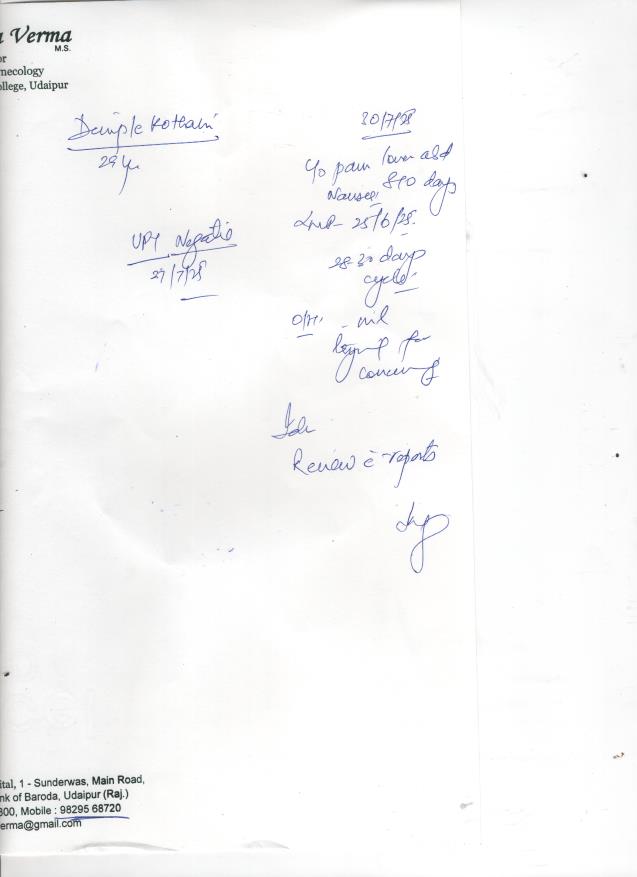 a Verma
M.S.
or
necology
ollege, Udaipur
Dimple Kothari
29 yr
30/7/25
c/o pain lower abd
Nausea 8-10 days
LMP - 25/6/25
UPT Negative
27/7/25
28-30 days
cycle
O/H. - nil
for
conceiving
Adv
Review c̄ reports
ital, 1 - Sunderwas, Main Road,
nk of Baroda, Udaipur (Raj.)
300, Mobile : 98295 68720
erma@gmail.com